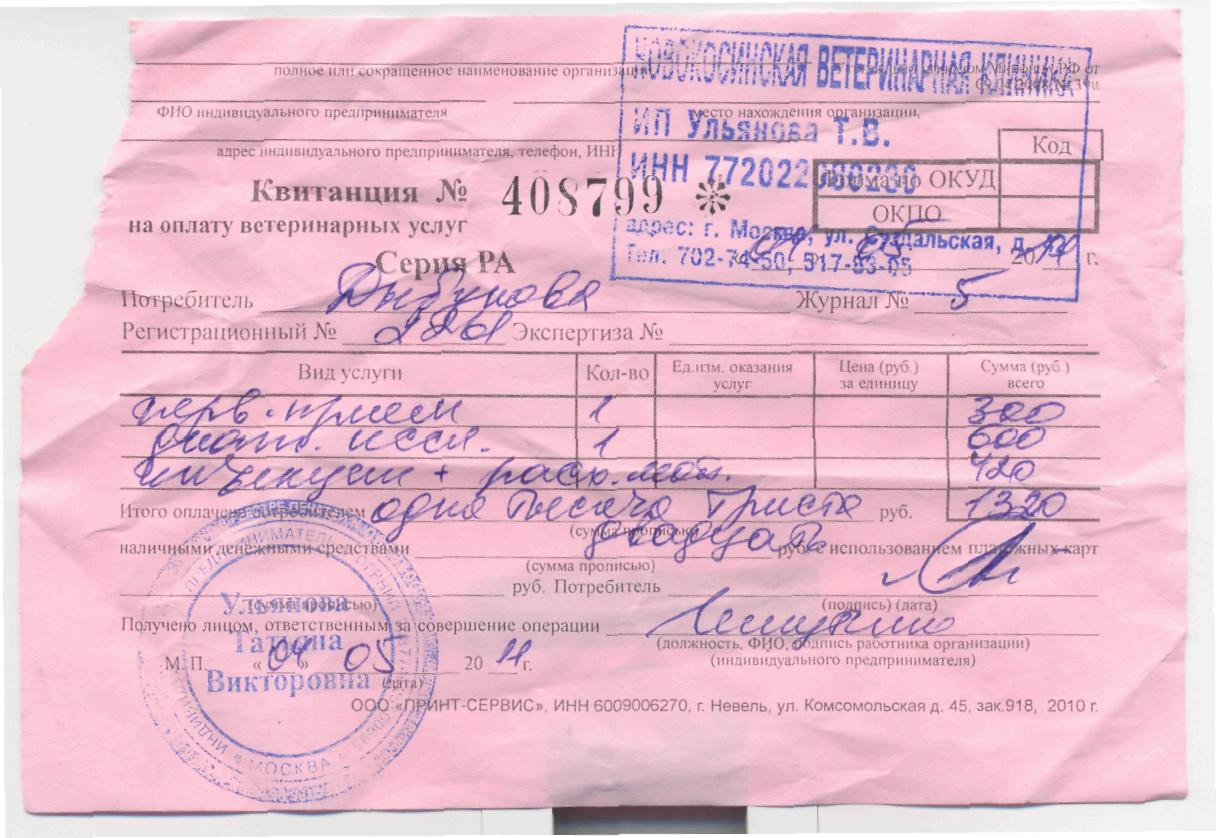 НОВОКОСИНСКАЯ ВЕТЕРИНАРНАЯ КЛИНИКА
полное или сокращенное наименование организации
ФИО индивидуального предпринимателя
место нахождения организации,
ИП Ульянова Т.В.
адрес индивидуального предпринимателя, телефон, ИНН
Код
ИНН 772022
Форма по ОКУД
Квитанция № 408799 *
ОКПО
на оплату ветеринарных услуг
адрес: г. Москва, ул. Суздальская, д. 12
Тел. 702-74-50, 517-83-05
05 2011 г.
Серия РА
Потребитель Журнал № 5
Регистрационный № Экспертиза №
Вид услуги Кол-во Ед.изм. оказания услуг Цена (руб.) за единицу Сумма (руб.) всего
перв. прием 1 300
иссл. 1 600
инъекции + расх. мат. 420
Итого оплачено потребителем одна тысяча триста руб. 1320
(сумма прописью)
двадцать
наличными денежными средствами руб. с использованием платежных карт
(сумма прописью)
руб. Потребитель
(сумма прописью) (подпись) (дата)
Получено лицом, ответственным за совершение операции
(должность, ФИО, подпись работника организации)
(индивидуального предпринимателя)
М.П. « 04 » 05 20 11 г.
(дата)
Ульянова
Татьяна
Викторовна
МОСКВА
ООО «ПРИНТ-СЕРВИС», ИНН 6009006270, г. Невель, ул. Комсомольская д. 45, зак.918, 2010 г.